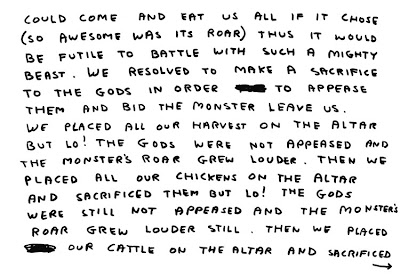 COULD COME AND EAT US ALL IF IT CHOSE
(SO AWESOME WAS ITS ROAR) THUS IT WOULD
BE FUTILE TO BATTLE WITH SUCH A MIGHTY
BEAST. WE RESOLVED TO MAKE A SACRIFICE
TO THE GODS IN ORDER TO APPEASE
THEM AND BID THE MONSTER LEAVE US.
WE PLACED ALL OUR HARVEST ON THE ALTAR
BUT LO! THE GODS WERE NOT APPEASED AND
THE MONSTER'S ROAR GREW LOUDER. THEN WE
PLACED ALL OUR CHICKENS ON THE ALTAR
AND SACRIFICED THEM BUT LO! THE GODS
WERE STILL NOT APPEASED AND THE MONSTER'S
ROAR GREW LOUDER STILL. THEN WE PLACED
OUR CATTLE ON THE ALTAR AND SACRIFICED